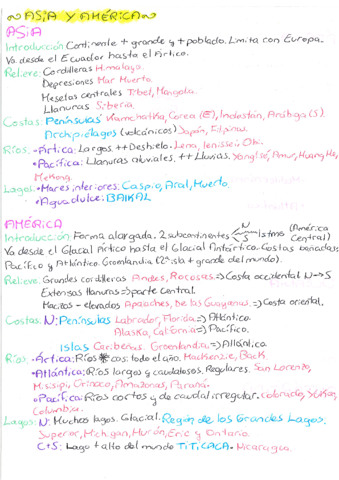 ~ASIA Y AMÉRICA~
ASIA
Introducción Continente + grande y + poblado. Limita con Europa.
Va desde el Ecuador hasta el Ártico.
Relieve: Cordilleras Himalaya.
Depresiones Mar Muerto
Mesetas centrales Tibet, Mongolia.
Llanuras Siberia.
Costas: Penínsulas Kamchatka, Corea (E), Indostán, Arábiga (S).
Archipiélagos (volcánicos) Japón, Filipinas.
Ríos: •Ártica: Largos, ++ Deshielo. Lena, Ienissei Obi.
•Pacífica: Llanuras aluviales, ++ Lluvias. Yangtsé, Amur, Huang He,
Mekong.
Lagos: •Mares interiores: Caspio, Aral, Muerto.
•Agua dulce: BAIKAL
AMÉRICA
Introducción Forma alargada. 2 subcontinentes N S Istmo (América Central)
Va desde el Glacial Ártico hasta el Glacial Antártico. Costas bañadas:
Pacífico y Atlántico. Groenlandia (2ª isla + grande del mundo).
Relieve: Grandes cordilleras Andes, Rocosas => Costa occidental N->S
Extensas llanuras => parte central.
Macizos - elevados Apalaches, De las Guayanas. => Costa oriental.
Costas: N: Penínsulas Labrador, Florida => Atlántico.
Alaska, California => Pacífico.
Islas Caribeñas. Groenlandia => Atlántico.
Ríos: •Ártica: Ríos cos. todo el año. Mackenzie, Back.
•Atlántica: Ríos largos y caudalosos. Regulares. San Lorenzo,
Misisipi, Orinoco, Amazonas, Paraná.
•Pacífica: Ríos cortos y de caudal irregular. Colorado, Yukon,
Columbia.
Lagos: N: Muchos lagos. Glacial. Región de los Grandes Lagos.
Superior, Michigan, Hurón, Eric y Ontario.
C+S: Lago + alto del mundo TITICACA. Nicaragua.